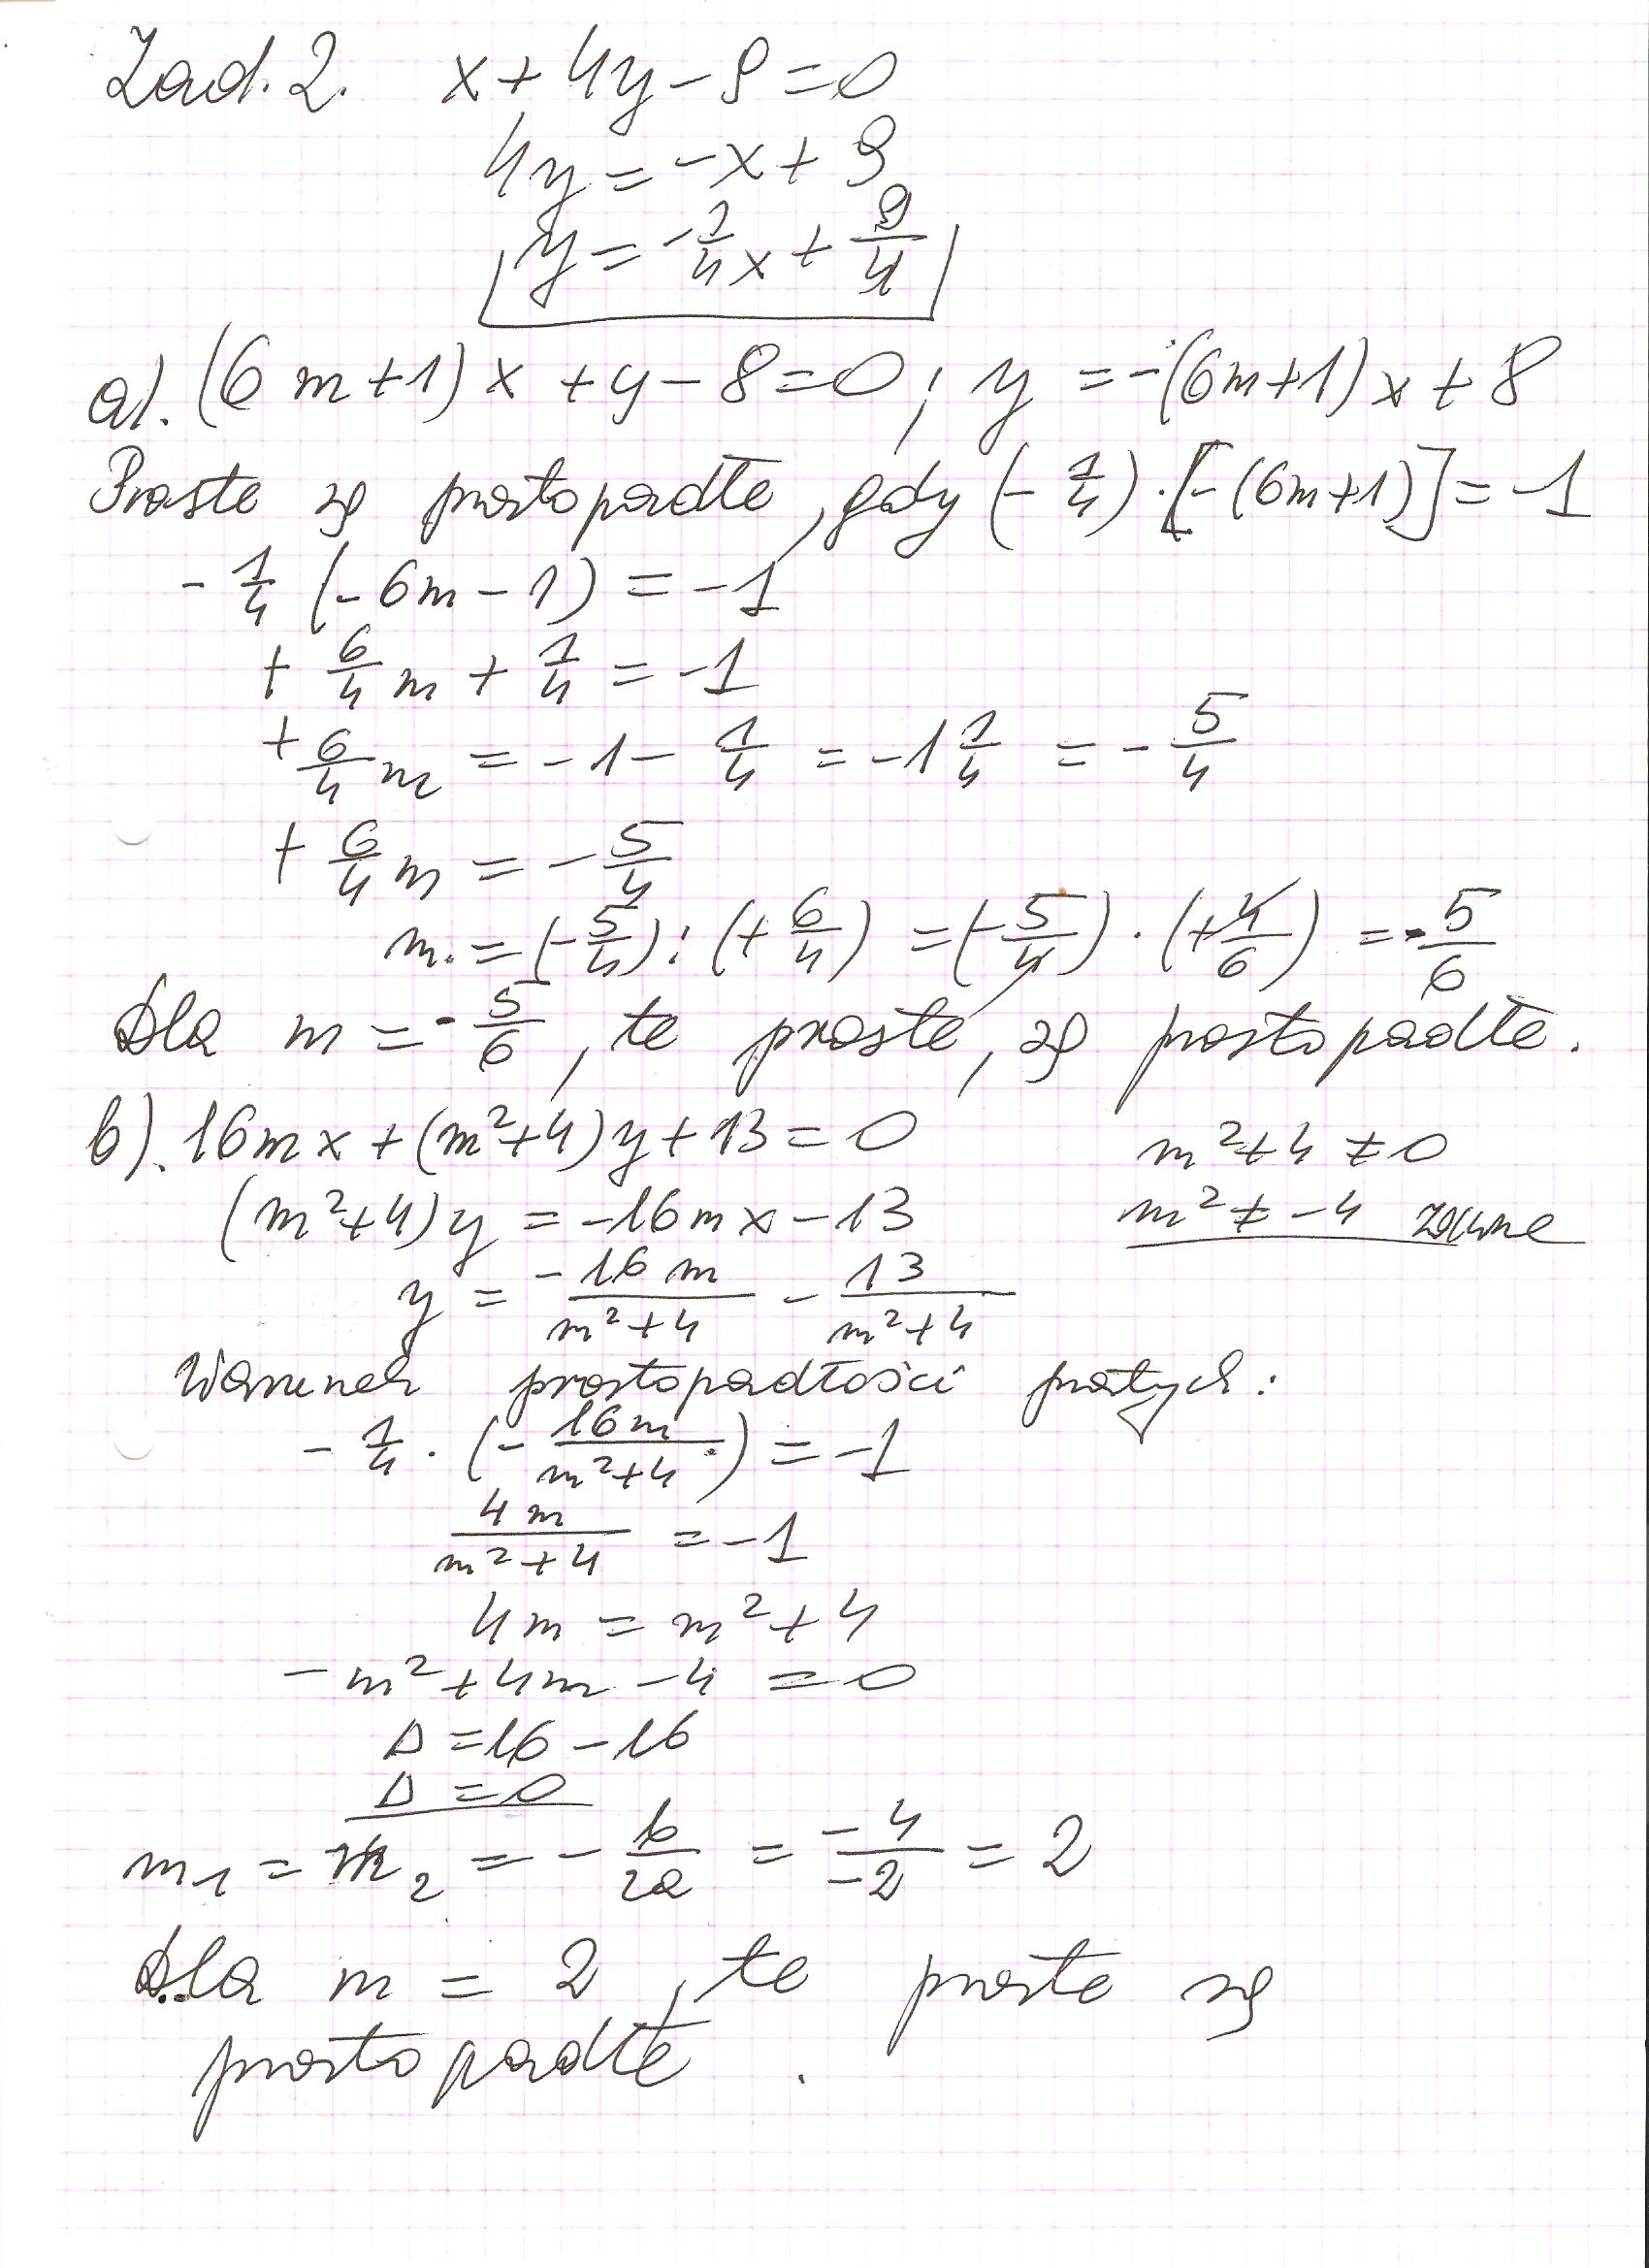 Zad. 2. x + 4y - 9 = 0
4y = -x + 9
y = -1/4 x + 9/4
a). (6m+1)x + y - 8 = 0; y = -(6m+1)x + 8
Proste są prostopadłe, gdy (-1/4)·[-(6m+1)] = -1
-1/4 (-6m-1) = -1
+ 6/4 m + 1/4 = -1
+ 6/4 m = -1 - 1/4 = -1 1/4 = -5/4
+ 6/4 m = -5/4
m = (-5/4) : (+6/4) = (-5/4)·(+4/6) = -5/6
Dla m = -5/6, te proste, są prostopadłe.
b). 16mx + (m²+4)y + 13 = 0 m²+4 ≠ 0
(m²+4)y = -16mx - 13 m² ≠ -4 zawsze
y = -16m/(m²+4) - 13/(m²+4)
Warunek prostopadłości prostych:
-1/4 · (-16m/(m²+4)) = -1
4m/(m²+4) = -1
4m = m²+4
-m²+4m-4 = 0
Δ = 16 - 16
Δ = 0
m₁ = m₂ = -b/2a = -4/-2 = 2
Dla m = 2, te proste są
prostopadłe.